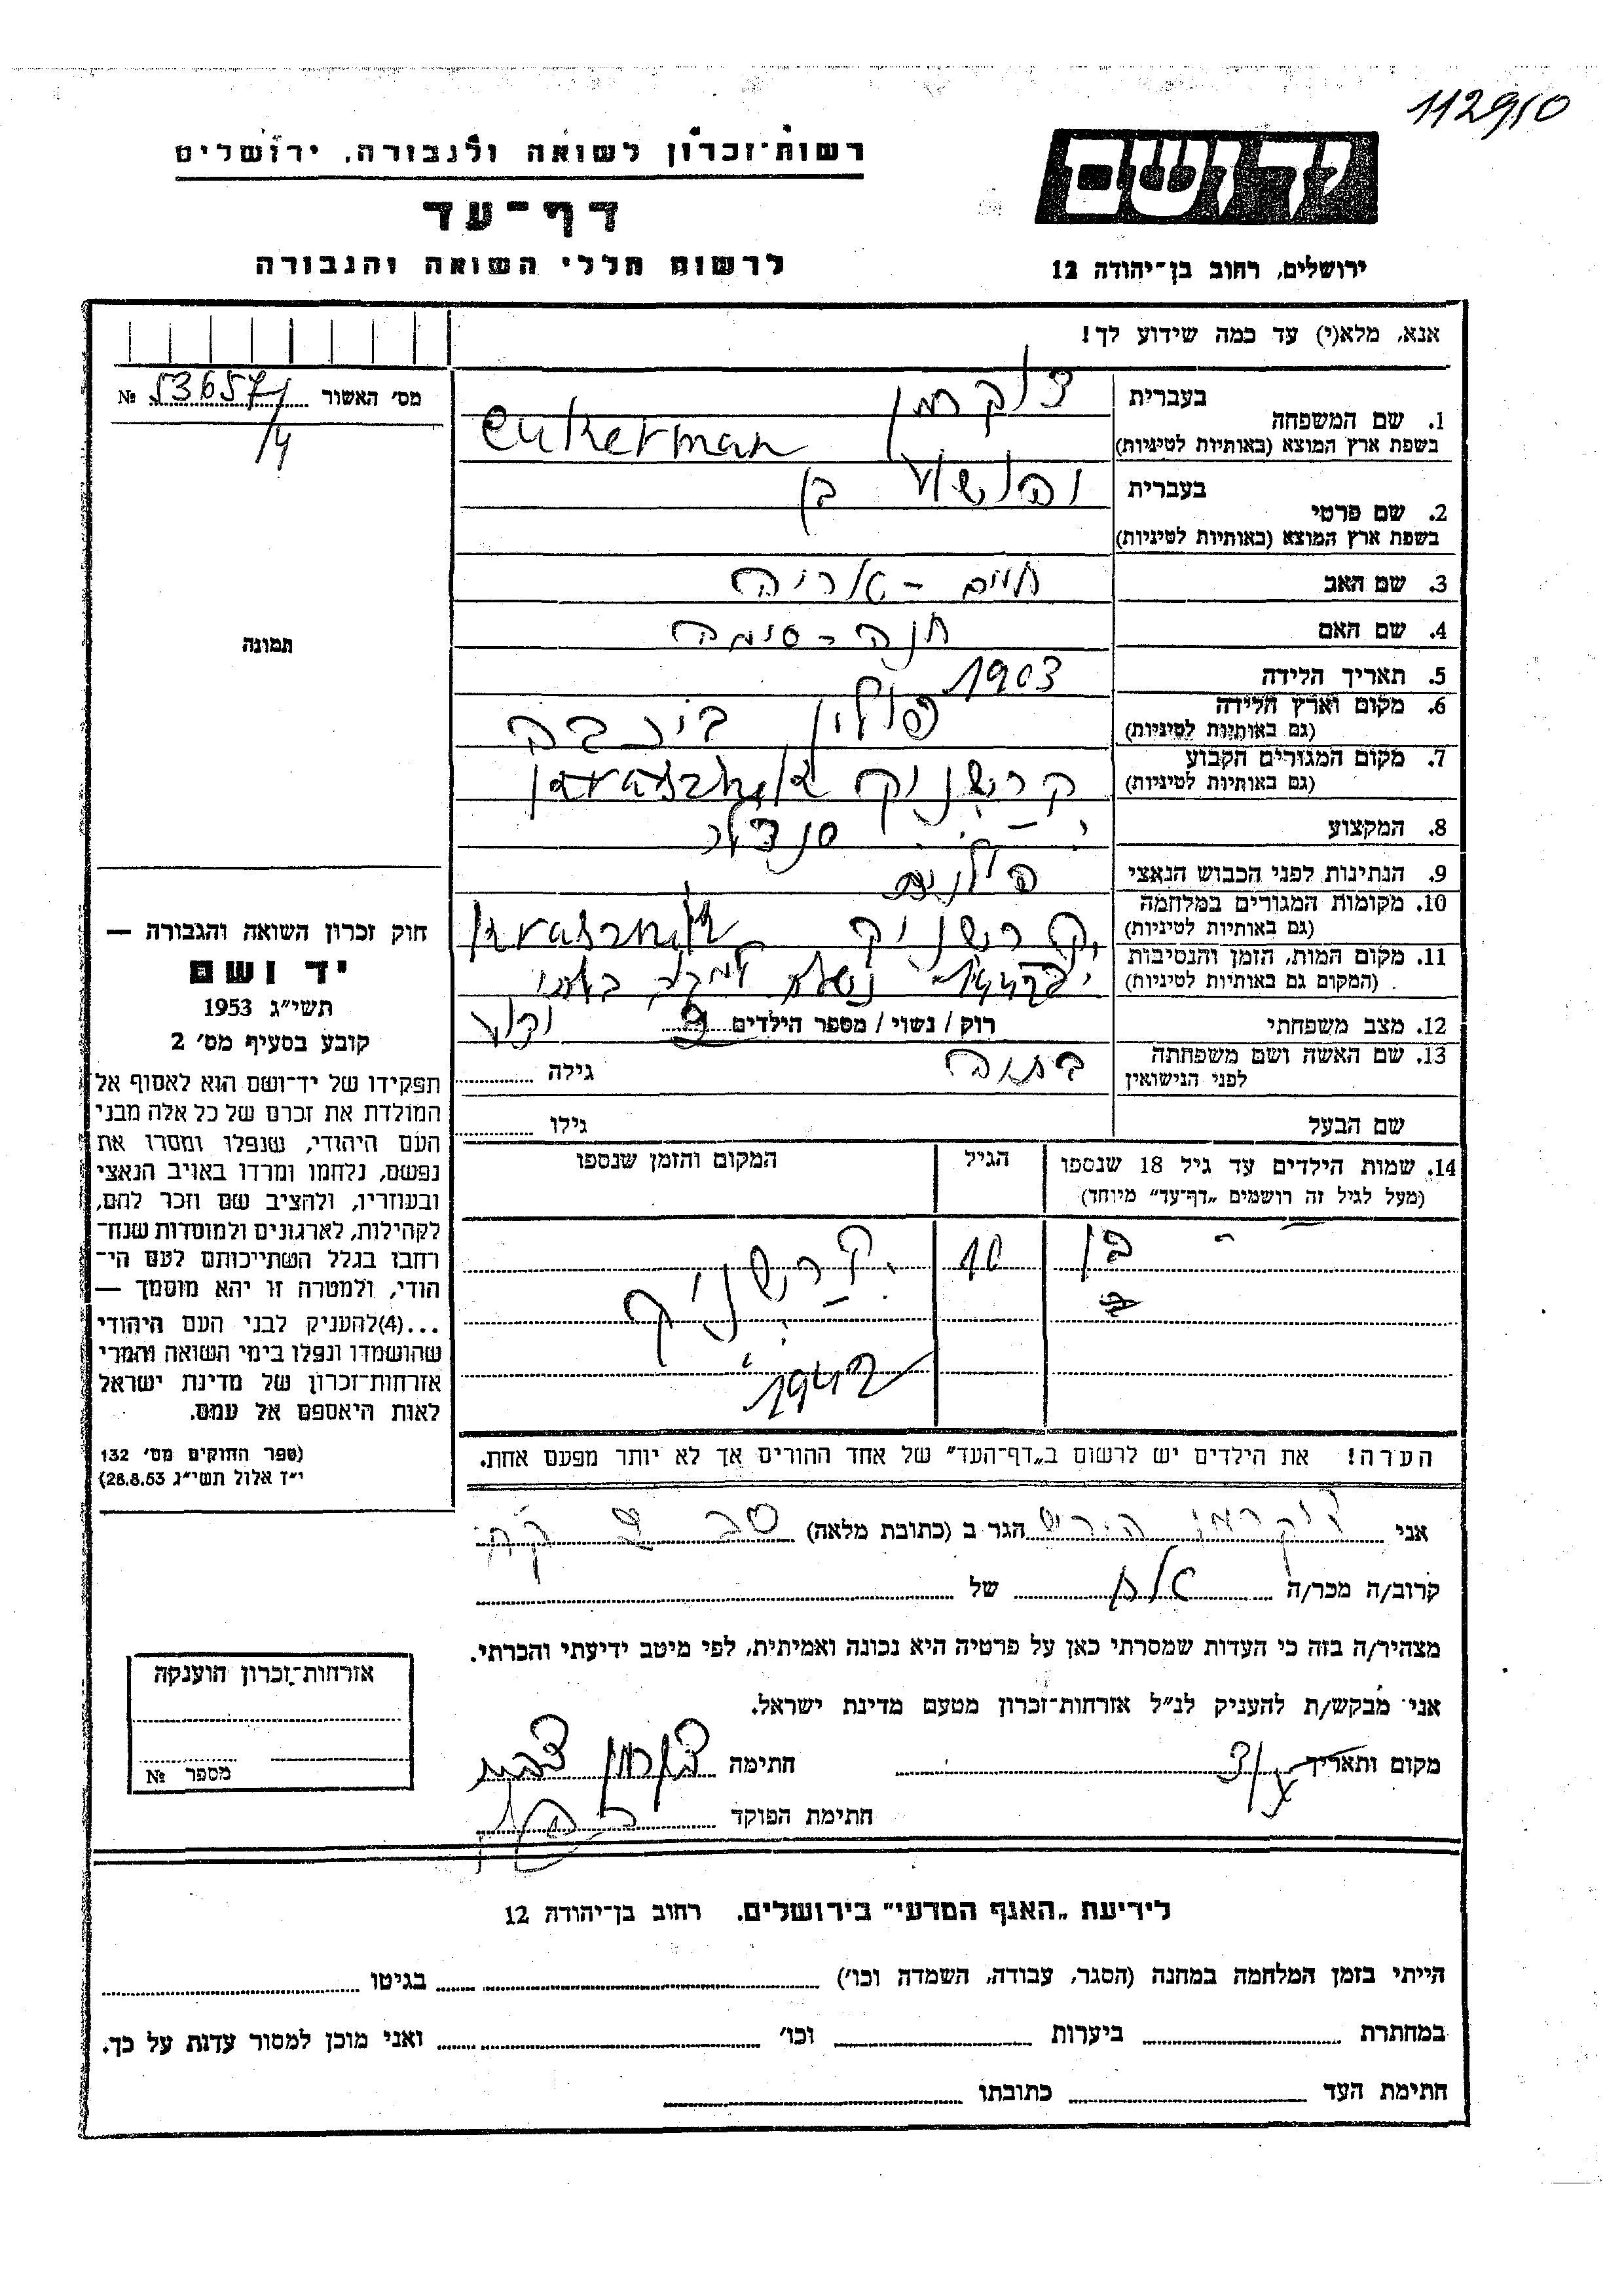 112910
רשות־זכרון לשואה ולגבורה, ירושלים
יד ושם
דף־עד
לרשום חללי השואה והגבורה
ירושלים, רחוב בן־יהודה 12
אנא, מלא(י) עד כמה שידוע לך!
מס׳ האשור № 53657/4
1. שם המשפחה בעברית צוקרמן
בשפת ארץ המוצא (באותיות לטיניות) cukerman
2. שם פרטי בעברית יהושע בן
בשפת ארץ המוצא (באותיות לטיניות)
3. שם האב חיים - אריה
4. שם האם חנה - סימה
5. תאריך הלידה 1903
6. מקום וארץ הלידה (גם באותיות לטיניות) פולין
7. מקום המגורים הקבוע (גם באותיות לטיניות) קרשניק
8. המקצוע סנדלר
9. הנתינות לפני הכבוש הנאצי פולנית
10. מקומות המגורים במלחמה (גם באותיות לטיניות) קרשניק
11. מקום המות, הזמן והנסיבות (המקום גם באותיות לטיניות) נשלח
12. מצב משפחתי רוק / נשוי / מספר הילדים
13. שם האשה ושם משפחתה לפני הנישואין גילה
שם הבעל גילו
תמונה
14. שמות הילדים עד גיל 18 שנספו (מעל לגיל זה רושמים „דף־עד״ מיוחד) הגיל המקום והזמן שנספו
בן 10 קרשניק
1942
הערה! את הילדים יש לרשום ב„דף־העד״ של אחד ההורים אך לא יותר מפעם אחת.
חוק זכרון השואה והגבורה —
יד ושם
תשי״ג 1953
קובע בסעיף מס׳ 2
תפקידו של יד־ושם הוא לאסוף אל
המולדת את זכרם של כל אלה מבני
העם היהודי, שנפלו ומסרו את
נפשם, נלחמו ומרדו באויב הנאצי
ובעוזריו, ולהציב שם וזכר להם,
לקהילות, לארגונים ולמוסדות שנח־
רחבו בגלל השתייכותם לעם הי־
הודי, ולמטרה זו יהא מוסמך —
...(4)להעניק לבני העם היהודי
שהושמדו ונפלו בימי השואה והמרי
אזרחות־זכרון של מדינת ישראל
לאות היאספם אל עמם.
(ספר החוקים מס׳ 132
י״ז אלול תשי״ג 28.8.53)
אני צוקרמן הירש הגר ב (כתובת מלאה)
קרוב/ה מכר/ה אח של
מצהיר/ה בזה כי העדות שמסרתי כאן על פרטיה היא נכונה ואמיתית, לפי מיטב ידיעתי והכרתי.
אני מבקש/ת להעניק לנ״ל אזרחות־זכרון מטעם מדינת ישראל.
מקום ותאריך חתימה צוקרמן
חתימת הפוקד
אזרחות־זכרון הוענקה
מספר №
לידיעת „האגף המדעי״ בירושלים, רחוב בן־יהודה 12
הייתי בזמן המלחמה במחנה (הסגר, עבודה, השמדה וכו׳) בגיטו
במחתרת ביערות וכו׳ ואני מוכן למסור עדות על כך.
חתימת העד כתובתו